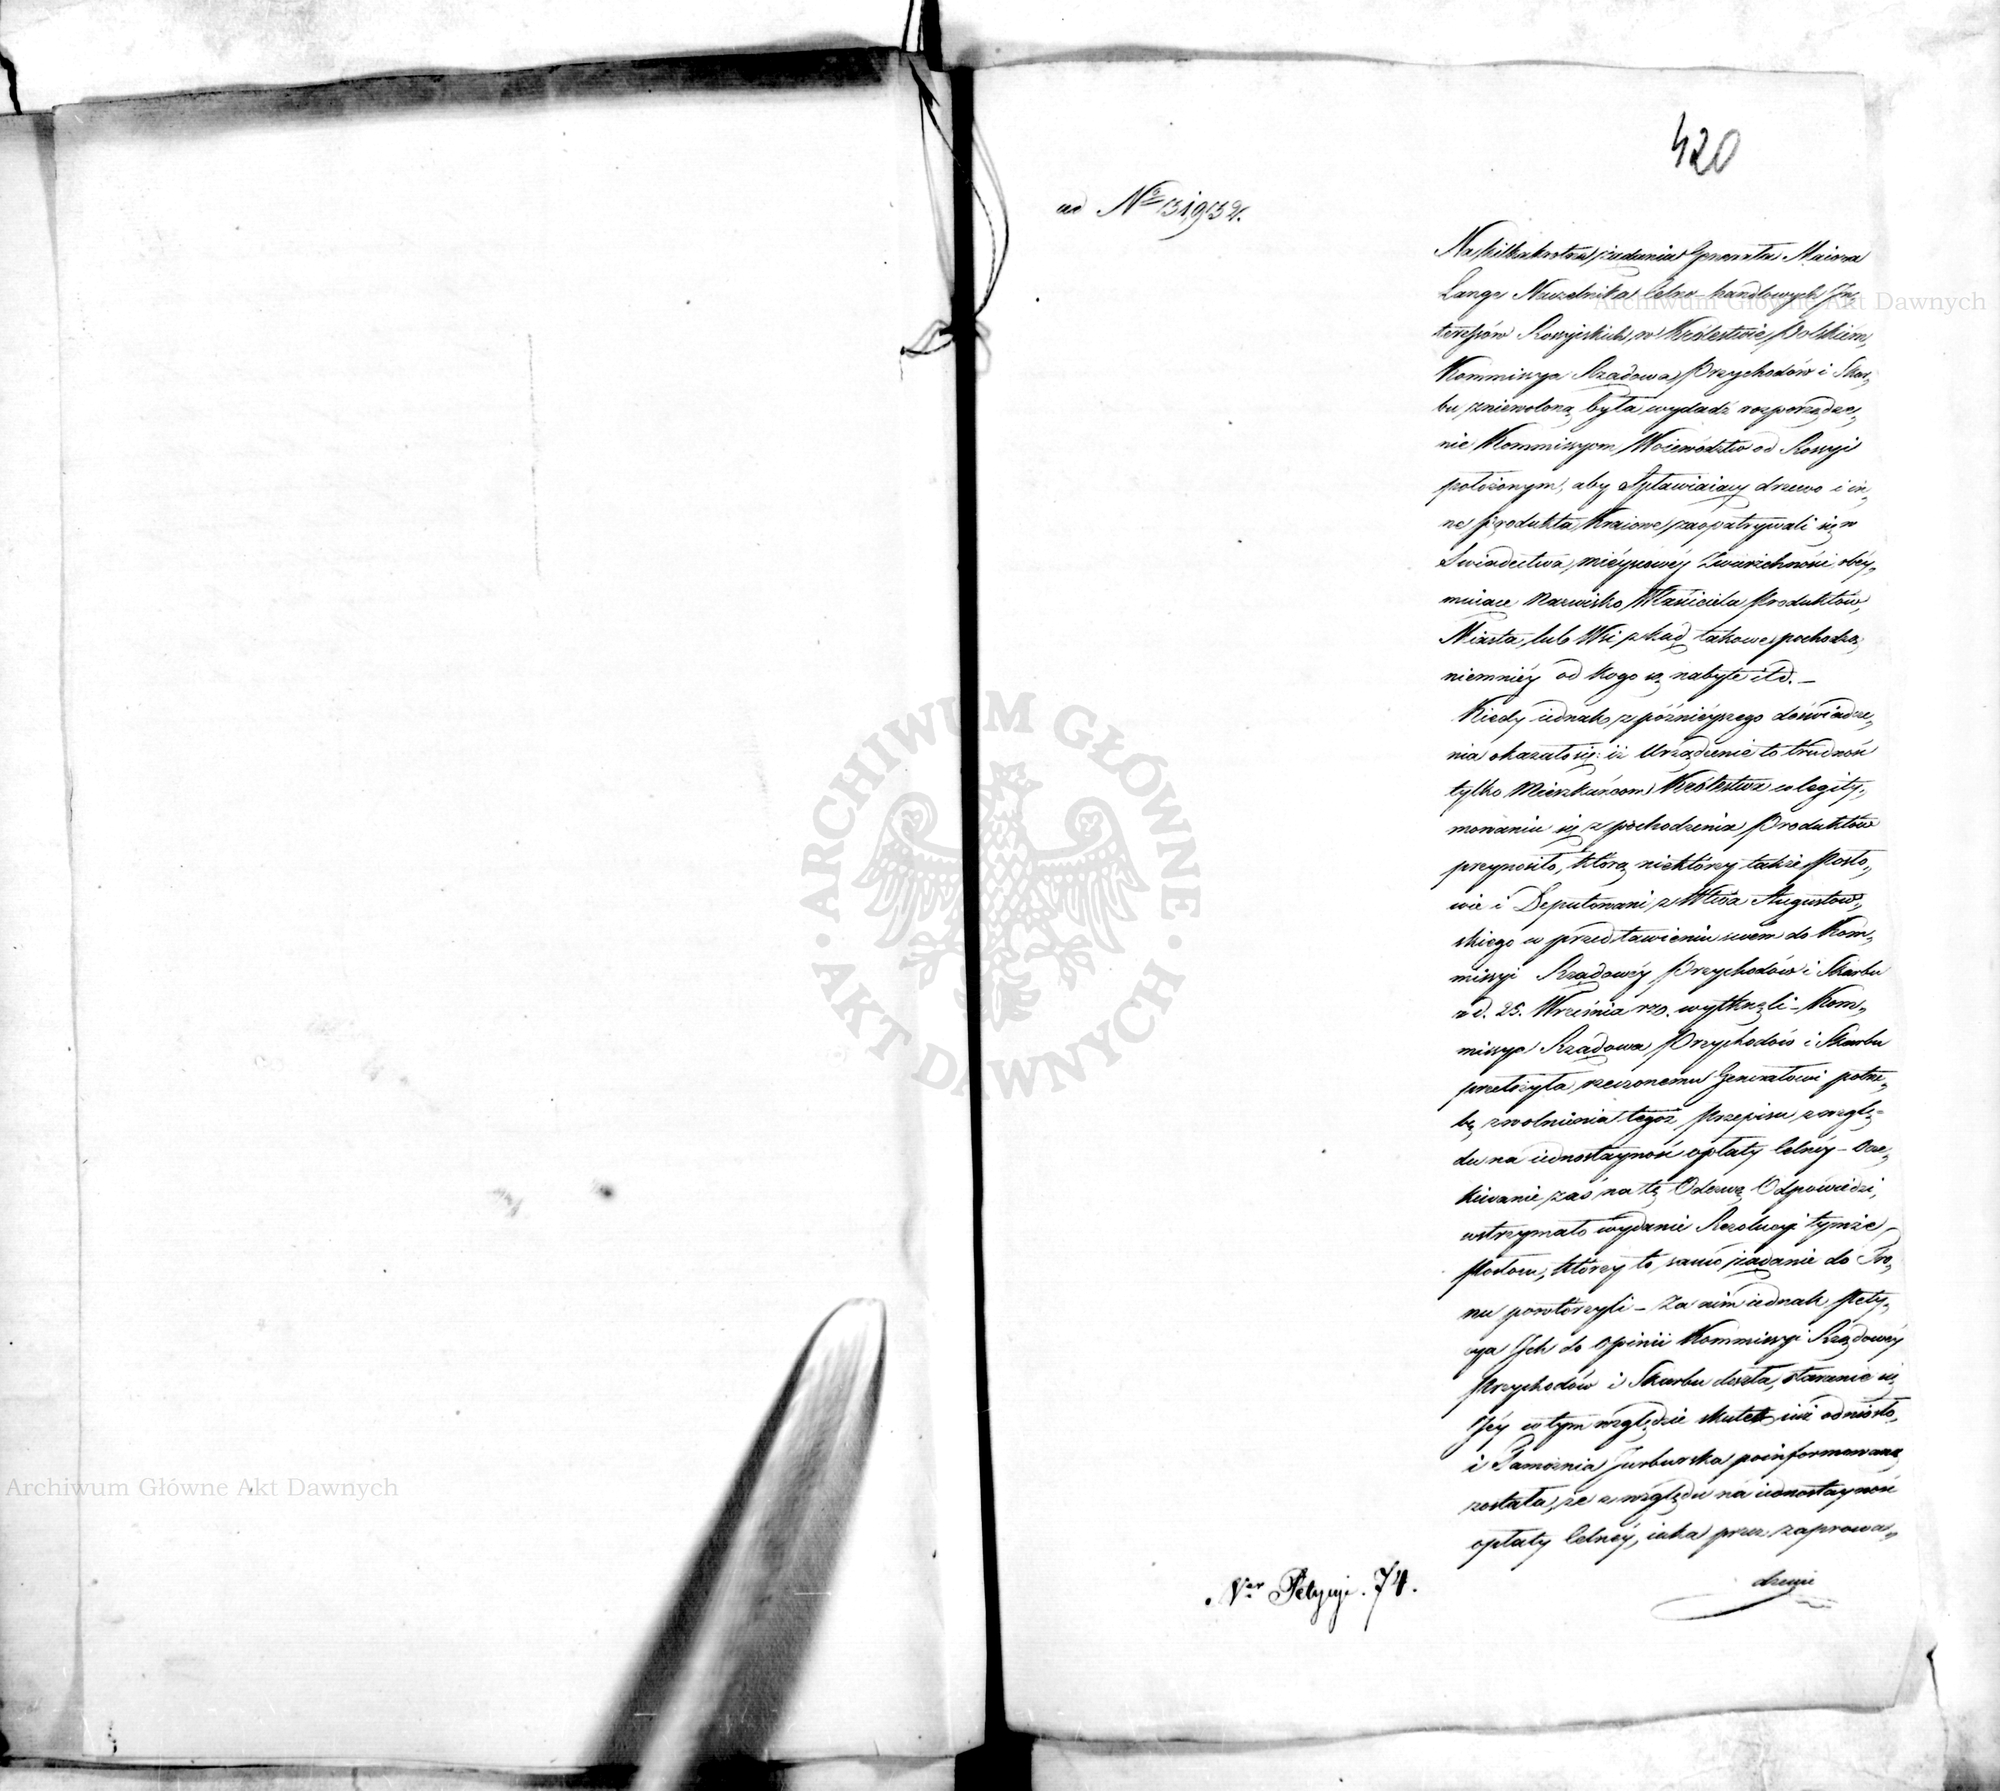 420
ad Nr 31,932.
Na kilkakrotne żądania Generała Maiora
Lange Naczelnika Celno-handlowych In„
teressów Rossyiskich w Królestwie Polskiem,
Kommissya Rządowa Przychodów i Skar„
bu zniewoloną była wydadź rozporządze„
nie Kommissyom Woiewództw od Rossyi
położonym, aby Spławiaiący drzewo i in„
ne produkta Kraiowe zaopatrywali się w
Swiadectwa mieyscowéy Zwierzchności obéy„
muiące Nazwisko Właściciela Produktów,
Miasta, lub Wsi zkąd takowe pochodzą
niemniéy od kogo są nabyte itd. —
Kiedy iednak z późnieyszego doświadcze„
nia okazało się: iż Urządzenie to trudność
tylko Mieszkańcom Królestwa w legity„
mowaniu się z pochodzenia Produktów
przynosiło, którą niektórzy także Posło„
wie i Deputowani z Wttwa Augustow„
skiego w przedstawieniu swem do Kom„
missyi Rządowéy Przychodów i Skarbu
z d. 25. Września rzo. wytknęli — Kom„
missya Rządowa Przychodów i Skarbu
przełożyła rzeczonemu Generałowi potrze„
bę zwolnienia tegoż Przepisu z wzglę=
du na iednostayność opłaty Celnéy — Ocze„
kiwanie zaś na tę Odezwę Odpowiedzi,
wstrzymało wydanie Rezolucyi tymże
Posłom, którzy to samo żądanie do Tro„
nu powtórzyli — Za nim iednak Pety„
cya Ich do Opinii Kommissyi Rządowéy
Przychodów i Skarbu doszła, staranie się
Jéy w tym względzie skutek iuż odniosło,
i Tamożnia Jurburska poinformowaną
została, że z względu na iednostayność
opłaty Celnéy, iaka przez zaprowa„
dzenie
Ner Petycyi. 74.
Archiwum Główne Akt Dawnych
Archiwum Główne Akt Dawnych
ARCHIWUM GŁÓWNE • AKT DAWNYCH •